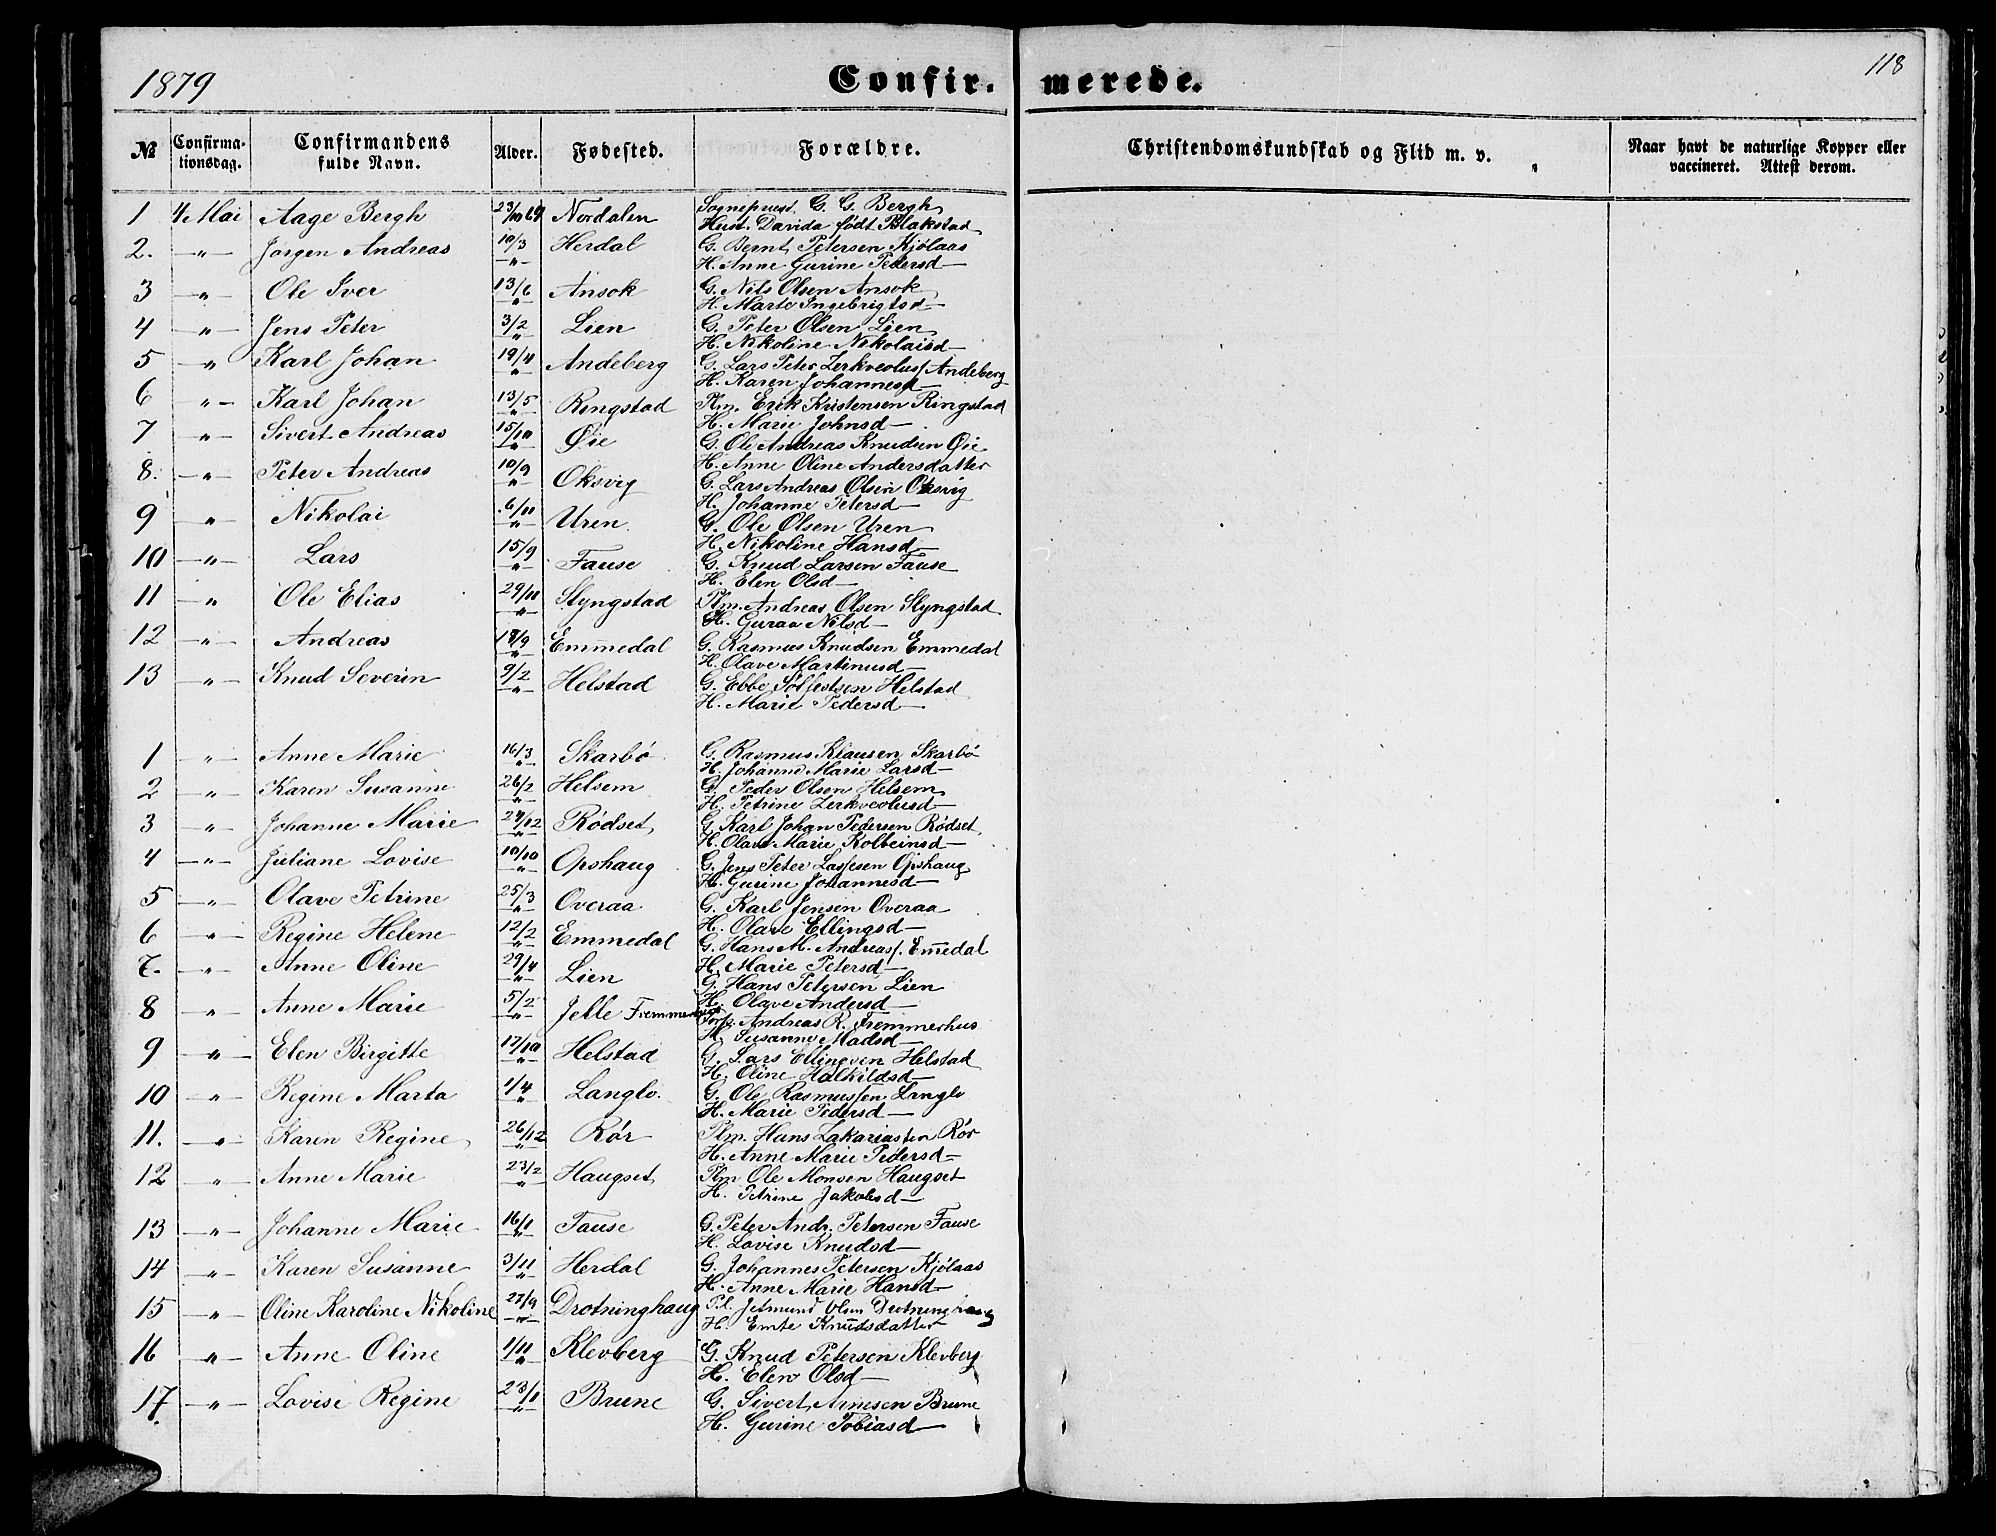 1879
Confir- merede.
118
№ Confirma-tionsdag. Confirmandens fulde Navn. Alder. Fødested. Forældre. Christendomskundskab og Flid m. v. Naar havt de naturlige Kopper eller vaccineret. Attest derom.
1 4 Mai Aage Bergh 23/10 64 Nordalen Sognepræst G. G. Bergh
Hust. Davida født Blakstad
2. -"- Jørgen Andreas 10/3 " Herdal G. Bernt Petersen Kjølaas
H. Anne Gurine Pedersd-
3 -"- Ole Iver 13/6 " Ansok G. Nils Olsen Ansok
H. Marte Ingebrigtsd-
4 -"- Jens Peter 3/2 " Lien G. Peter Olsen Lien
H. Nikoline Nikolaisd-
5 " Karl Johan 19/4 " Andeberg G. Lars Peter Zerkveolus/ Andeberg
H. Karen Johannesd-
6 -"- Karl Johan 13/5 " Ringstad Plm. Erik Kristensen Ringstad
H. Marie Johnsd-
7 -"- Sivert Andreas 15/10 " Øie G. Ole Andreas Knudsen Øie
H. Anne Oline Andersdatter
8. -"- Peter Andreas 10/9 " Oksvig G. Lars Andreas Olsen Oksvig
H. Johanne Petersd-
9 -"- Nikolai 6/11 " Uren G. Ole Olsen Uren
H. Nikoline Hansd-
10 -"- Lars 15/9 " Fause G. Knud Larsen Fause
H. Elen Olsd-
11 -"- Ole Elias 29/11 " Slyngstad Plm. Andreas Olsen Slyngstad
H. Guraa Nilsd-
12 -"- Andreas 18/9 " Emmedal G. Rasmus Knudsen Emmedal
H. Olave Martinusd-
13 -"- Knud Severin 9/2 " Helstad G. Ebbe Solfestsen Helstad
H. Marie Pedersd-
1 -"- Anne Marie 16/3 " Skarbø G. Rasmus Klausen Skarbø
H. Johanne Marie Larsd-
2 -"- Karen Susanne 26/2 " Helsem G. Peder Olsen Helsem
H. Petrine Zerkveolusd-
3 -"- Johanne Marie 24/12 " Rødset G. Karl Johan Pedersen Rødset
H. Olave Marie Kolbeinsd-
4 -"- Juliane Lovise 10/10 " Opshaug G. Jens Peter Lassesen Opshaug
H. Gurine Johannesd-
5 -"- Olave Petrine 25/3 " Overaa G. Karl Jensen Overaa
H. Olave Ellingsd-
6 -"- Regine Helene 12/2 " Emmedal G. Hans M. Andreas/. Em̄edal
H. Marie Petersd-
7. -"- Anne Oline 29/4 " Lien G. Hans Petersen Lien
H. Olave Andersd-
8 -"- Anne Marie 5/2 " Jelle Andreas R. Fremmerhus
H. Susanne Madsd-
9 -"- Elen Birgitte 17/10 " Helstad G. Lars Ellingsen Helstad
H. Oline Halkildsd-
10 -"- Regine Marta 1/4 " Langlo. G. Ole Rasmussen Langlo
H. Marie Pedersd-
11. -"- Karen Regine 26/12 " Rør Plm. Hans Zakariassen Rør
H. Anne Marie Pedersd-
12 -"- Anne Marie 23/2 " Haugset Plm Ole Monsen Haugset
H. Petrine Jakobsd-
13 -"- Johanne Marie 16/1 " Fause G. Peter Andr. Petersen Fause
H. Lovise Knudsd-
14 -"- Karen Susanne 3/11 " Herdal G. Johannes Petersen Kjølaas
H. Anne Marie Hansd-
15 -"- Oline Karoline Nikoline 27/9 " Drotninghaug Pl. Jetmund Olsen Drotninghaug
H. Emte Knudsdatter
16 -"- Anne Oline 1/11 " Klevberg G. Knud Petersen Klevberg
H. Elen Olsd-
17. -"- Lovise Regine 23/11 " Brune G. Sivert Arnesen Brune
H. Gurine Tobiasd-